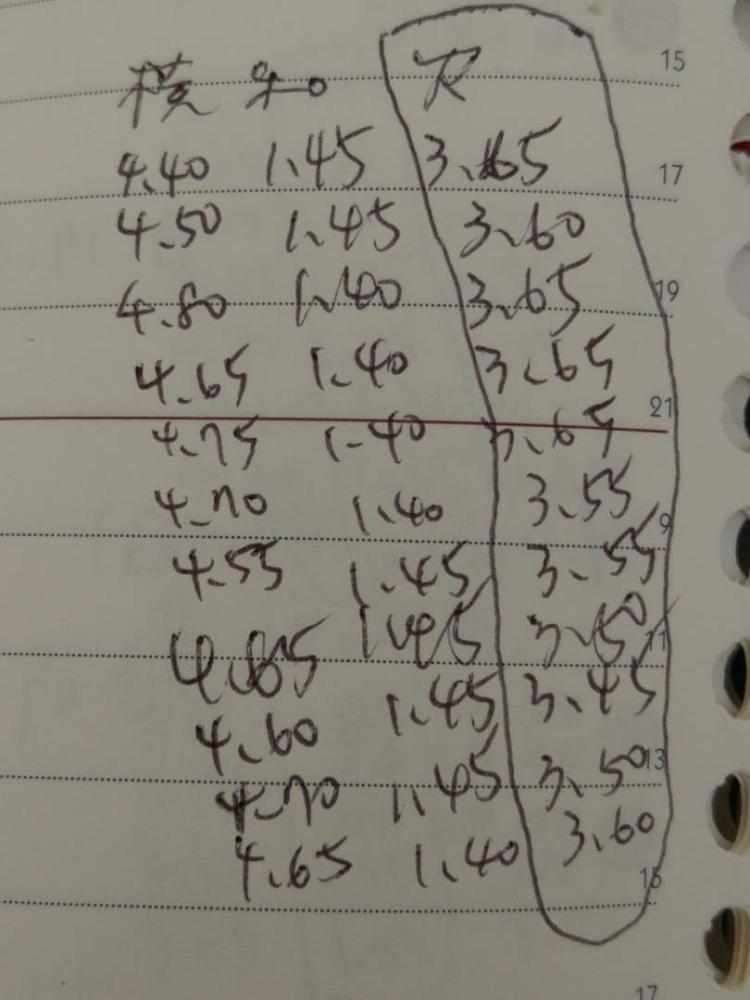 横 和 R
4.40 1.45 3.65
4.50 1.45 3.60
4.80 1.40 3.65
4.65 1.40 3.65
4.75 1.40 3.65
4.70 1.40 3.55
4.55 1.45 3.55
4.65 1.45 3.50
4.60 1.45 3.45
4.70 1.45 3.50
4.65 1.40 3.60
15
17
19
21
9
11
13
15
17